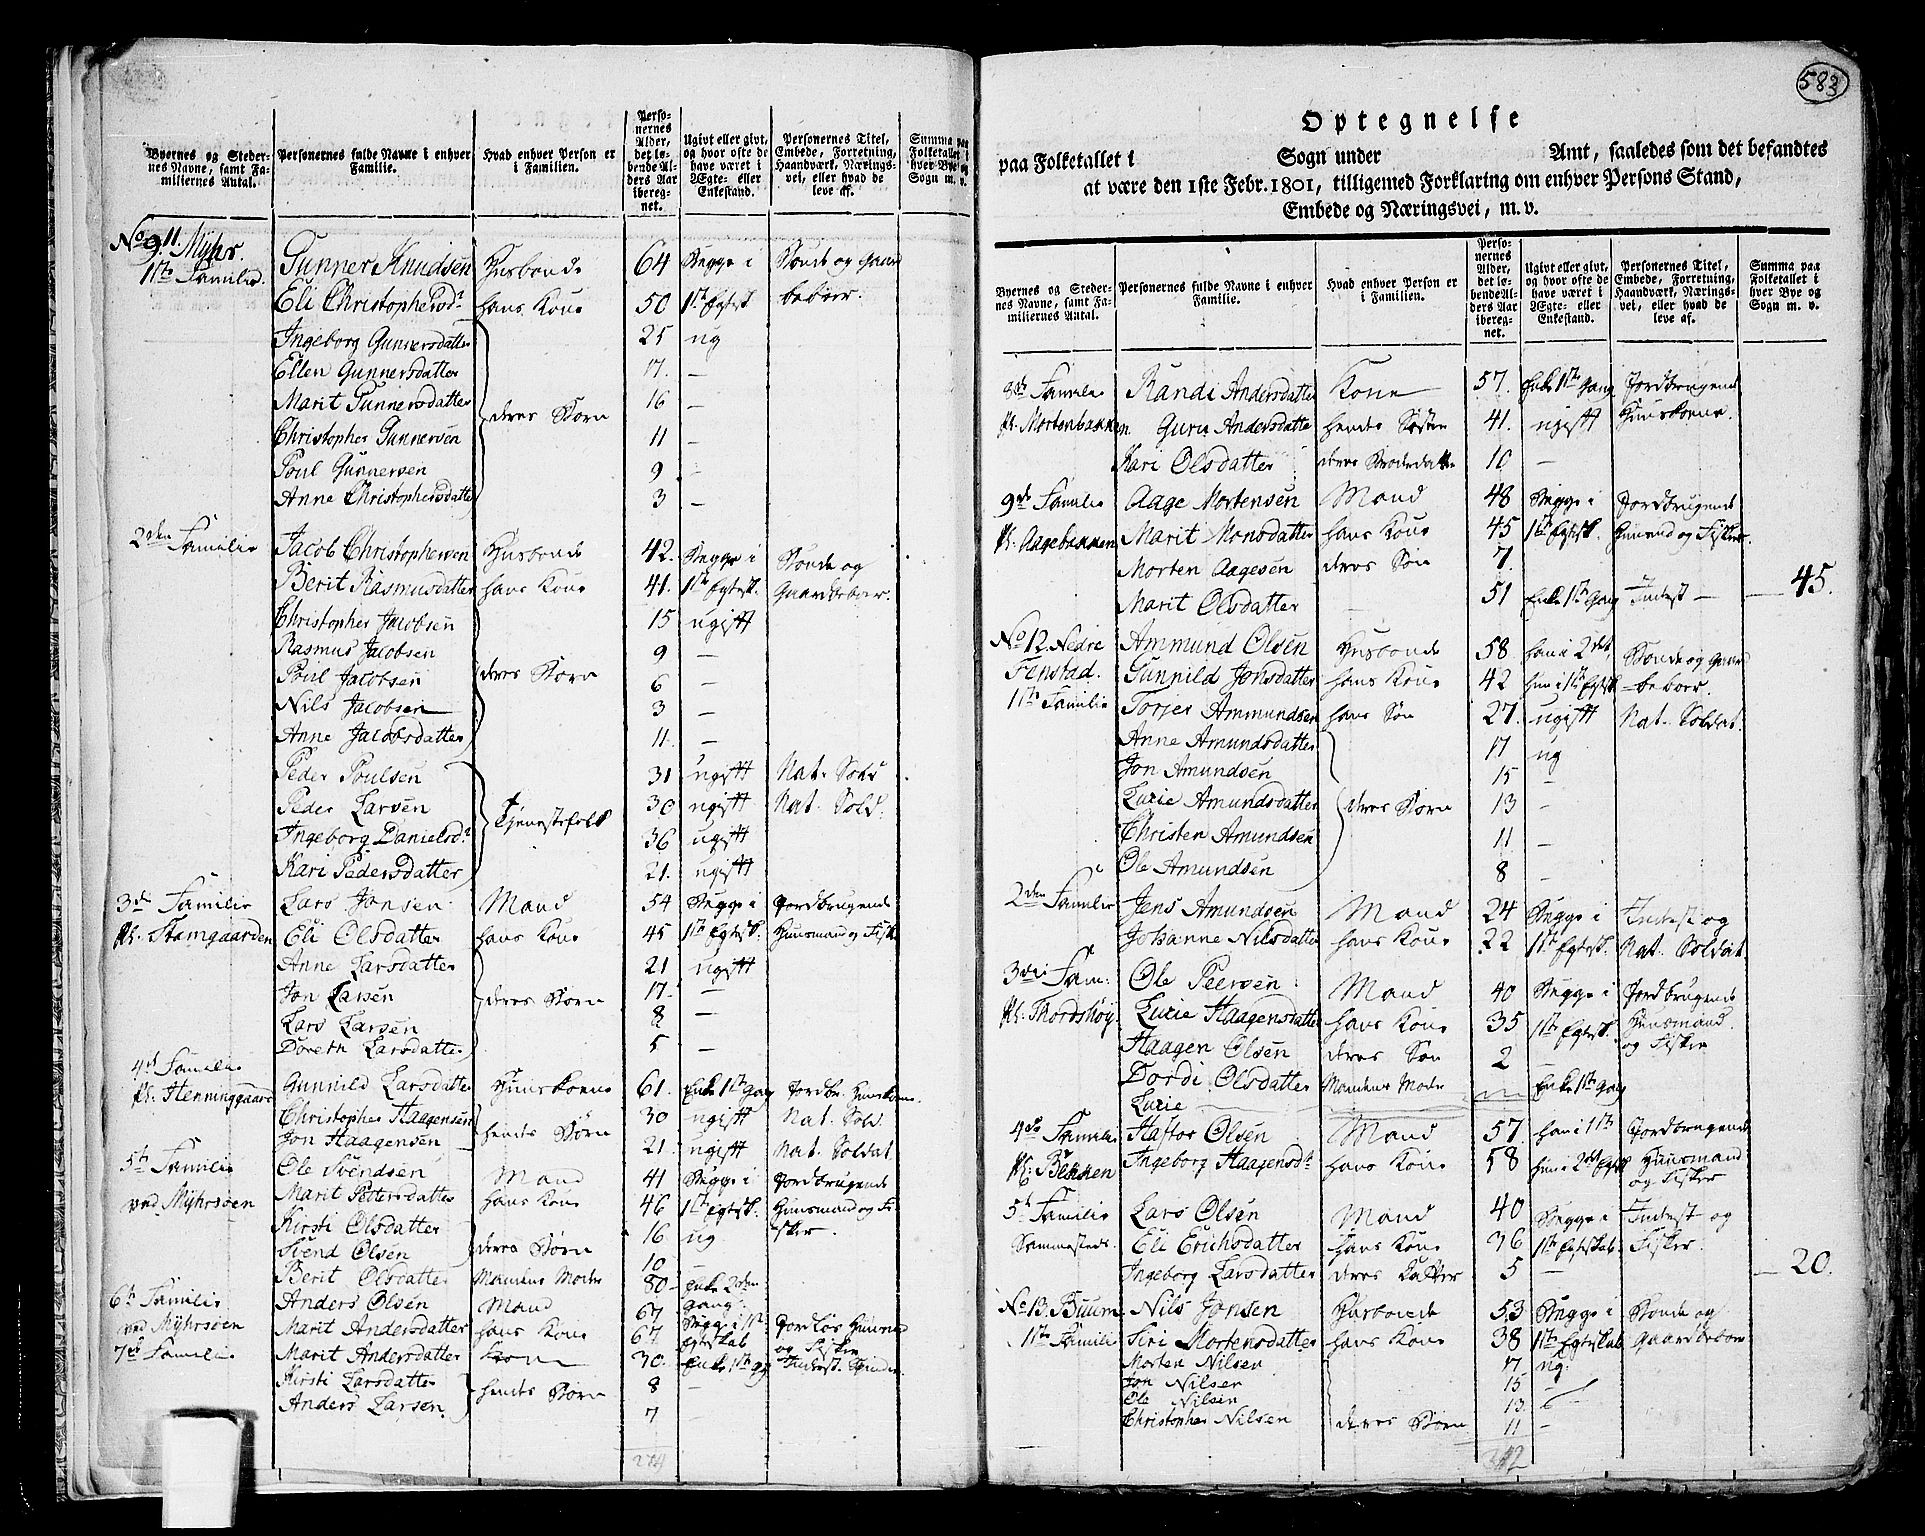 Byernes og Steder-
nes Navne, samt Fa-
miliernes Antal.
Personernes fulde Navne i enhver
Familie.
Hvad enhver Person er
i Familien.
Perso-
nernes
Alder,
det lø-
bende Al-
ders Aar
ibereg-
net.
Ugivt eller givt,
og hvor ofte de
have været i
Ægte- eller
Enkestand.
Personernes Titel,
Embede, Forretning,
Haandværk, Nærings-
vei, eller hvad de
leve af.
Summa paa
Folketallet i
hver Bye og
Sogn m. v.
No 11. Myhr.
1ste Familie. Gunner Knudsen Husbonde 64 Begge i Bonde og Gaard
Eli Christophersd. hans Kone 50 1ste Egtesk beboer.
Ingeborg Gunnersdatter 25 ug
Ellen Gunnersdatter 17. —
Marit Gunnersdatter deres Børn 16 —
Christopher Gunnersen 11 —
Poul Gunnersen 9 —
Anne Christophersdatter 3 —
2den Familie Jacob Christophersen Husbonde 42. Begge i Bonde og
Berit Rasmusdatter hans Kone 41. 1ste Egtesk. Gaardbeboer.
Christopher Jacobsen 15 ugift
Rasmus Jacobsen 9 —
Poul Jacobsen deres Børn 6 —
Nils Jacobsen 3 —
Anne Jacobsdatter 11. —
Peder Poulsen 31 ugift Nat. Sold
Peder Larsen Tjenestefolk 30 ugift Nat. Sold.
Ingeborg Danielsd. 36 ugift
Kari Pedersdatter 21. ugift
3de Familie Lars Jonsen Mand 54 Begge i Jordbrugende
Pl. Stamgaarden Eli Olsdatter hans Kone 45 1ste Egtesk. Huusmand og Fisker
Anne Larsdatter 21 ugift
Jon Larsen deres Børn 17. —
Lars Larsen 8 —
Doreth Larsdatter 5 —
4de Familie
Pl. Henninggaard Gunnild Larsdatter Huuskone 61. Enke 1ste Gang Jordbr. Huuskone
Christopher Haagensen 30 ugift Nat. Sold.
Jon Haagensen hendes Børn 21. ugift Nat. Soldat
5te Familie Ole Svendsen Mand 41 Begge i Jordbrugende
ved Myhrsøen Marit Pettersdatter hans Kone 46 1ste Egtesk. Huusmand og Fi-
Kirsti Olsdatter 16 ug sker.
Svend Olsen deres Børn 10 —
Berit Olsdatter Mandens Moder 80 Enke 2den Gang
6te Familie Anders Olsen Mand 67 Begge i 1ste Jordløs Huusmd
ved Myhrsøen Marit Andersdatter hans Kone 67. Egteskab og Fisker
7de Familie Marit Andersdatter Kone 30. Enke 1ste Gg Inderst.
Kirsti Larsdatter 8 —
Anders Larsen. hendes Børn 7 —
274
583
Optegnelse
paa Folketallet i Sogn under Amt, saaledes som det befandtes
at være den 1ste Febr. 1801, tilligemed Forklaring om enhver Persons Stand,
Embede og Næringsvei, m. v.
Byernes og Steder-
nes Navne, samt Fa-
miliernes Antal.
Personernes fulde Navne i enhver
Familie.
Hvad enhver Person er
i Familien.
Perso-
nernes
Alder,
det lø-
bende Al-
ders Aar
ibereg-
net.
Ugivt eller givt,
og hvor ofte de
have været i
Ægte- eller
Enkestand.
Personernes Titel,
Embede, Forretning,
Haandværk, Nærings-
vei, eller hvad de
leve af.
Summa paa
Folketallet i
hver Bye og
Sogn m. v.
8de Familie Randi Andersdatter Kone 57. Enke 1ste Gang Jordbrugende
Pl. Mortenbakken Guru Andersdatter hendes Søster 41. ugift Huuskone.
Kari Olsdatter deres Broderdatter 10 —
9de Familie Aage Mortensen Mand 48 Begge i Jordbrugende
Pl. Aagebakken Marit Monsdatter hans Kone 45 1ste Egtesk. Huusmd og Fisker.
Morten Aagesen deres Søn 7.
Marit Olsdatter — 51 Enke 1ste Gang Inderst — 45.
No 12. Nedre Ammund Olsen Husbonde 58 han i 2det, Bonde og Gaard
Finstad. Gunnild Jonsdatter hans Kone 42 hun i 1ste Egtesk -beboer.
1ste Familie Torjer Ammundsen hans Søn 27. ugift Nat. Soldat.
Anne Amundsdatter 17 ug
Jon Amundsen 15 —
Lucie Amundsdatter deres Børn 13 —
Christen Amundsen 11 —
Ole Amundsen 8 —
2den Familie Jens Amundsen Mand 24 Begge i Inderst og
Johanne Nilsdatter hans Kone 22 1ste Egtesk. Nat. Soldat
3die Fam: Ole Peersen Mand 40 Begge i Jordbrugende
Pl. Thordshøy. Lucie Haagensdatter hans Kone 35 1ste Egtesk. Huusmand.
Haagen Olsen deres Søn 2 og Fisker
Dordi Olsdatter Mandens Moder Enke 1ste Gang
Lucie —
4de Familie Haftor Olsen Mand 57. han i 1ste Jordbrugende
Pl. Bekken Ingeborg Haagensd. hans Kone 58 hun i 2det Egtesk Huusmand
og Fisker
5te Familie Lars Olsen Mand 40 Begge i Inderst og
Sammesteds. Eli Erichsdatter hans Kone 36 1ste Egteskab Fisker.
Ingeborg Larsdatter deres Datter 5 — 20.
No 13. Buum Nils Jonsen Husbonde 53 Begge i Bonde og
1ste Familie Siri Mortensdatter hans Kone 38 1ste Egteskab Gaardbeboer
Morten Nilsen 17 ug.
Jon Nilsen 15 —
Ole Nilsen 13. —
Christopher Nilsen deres Børn 11 —
312